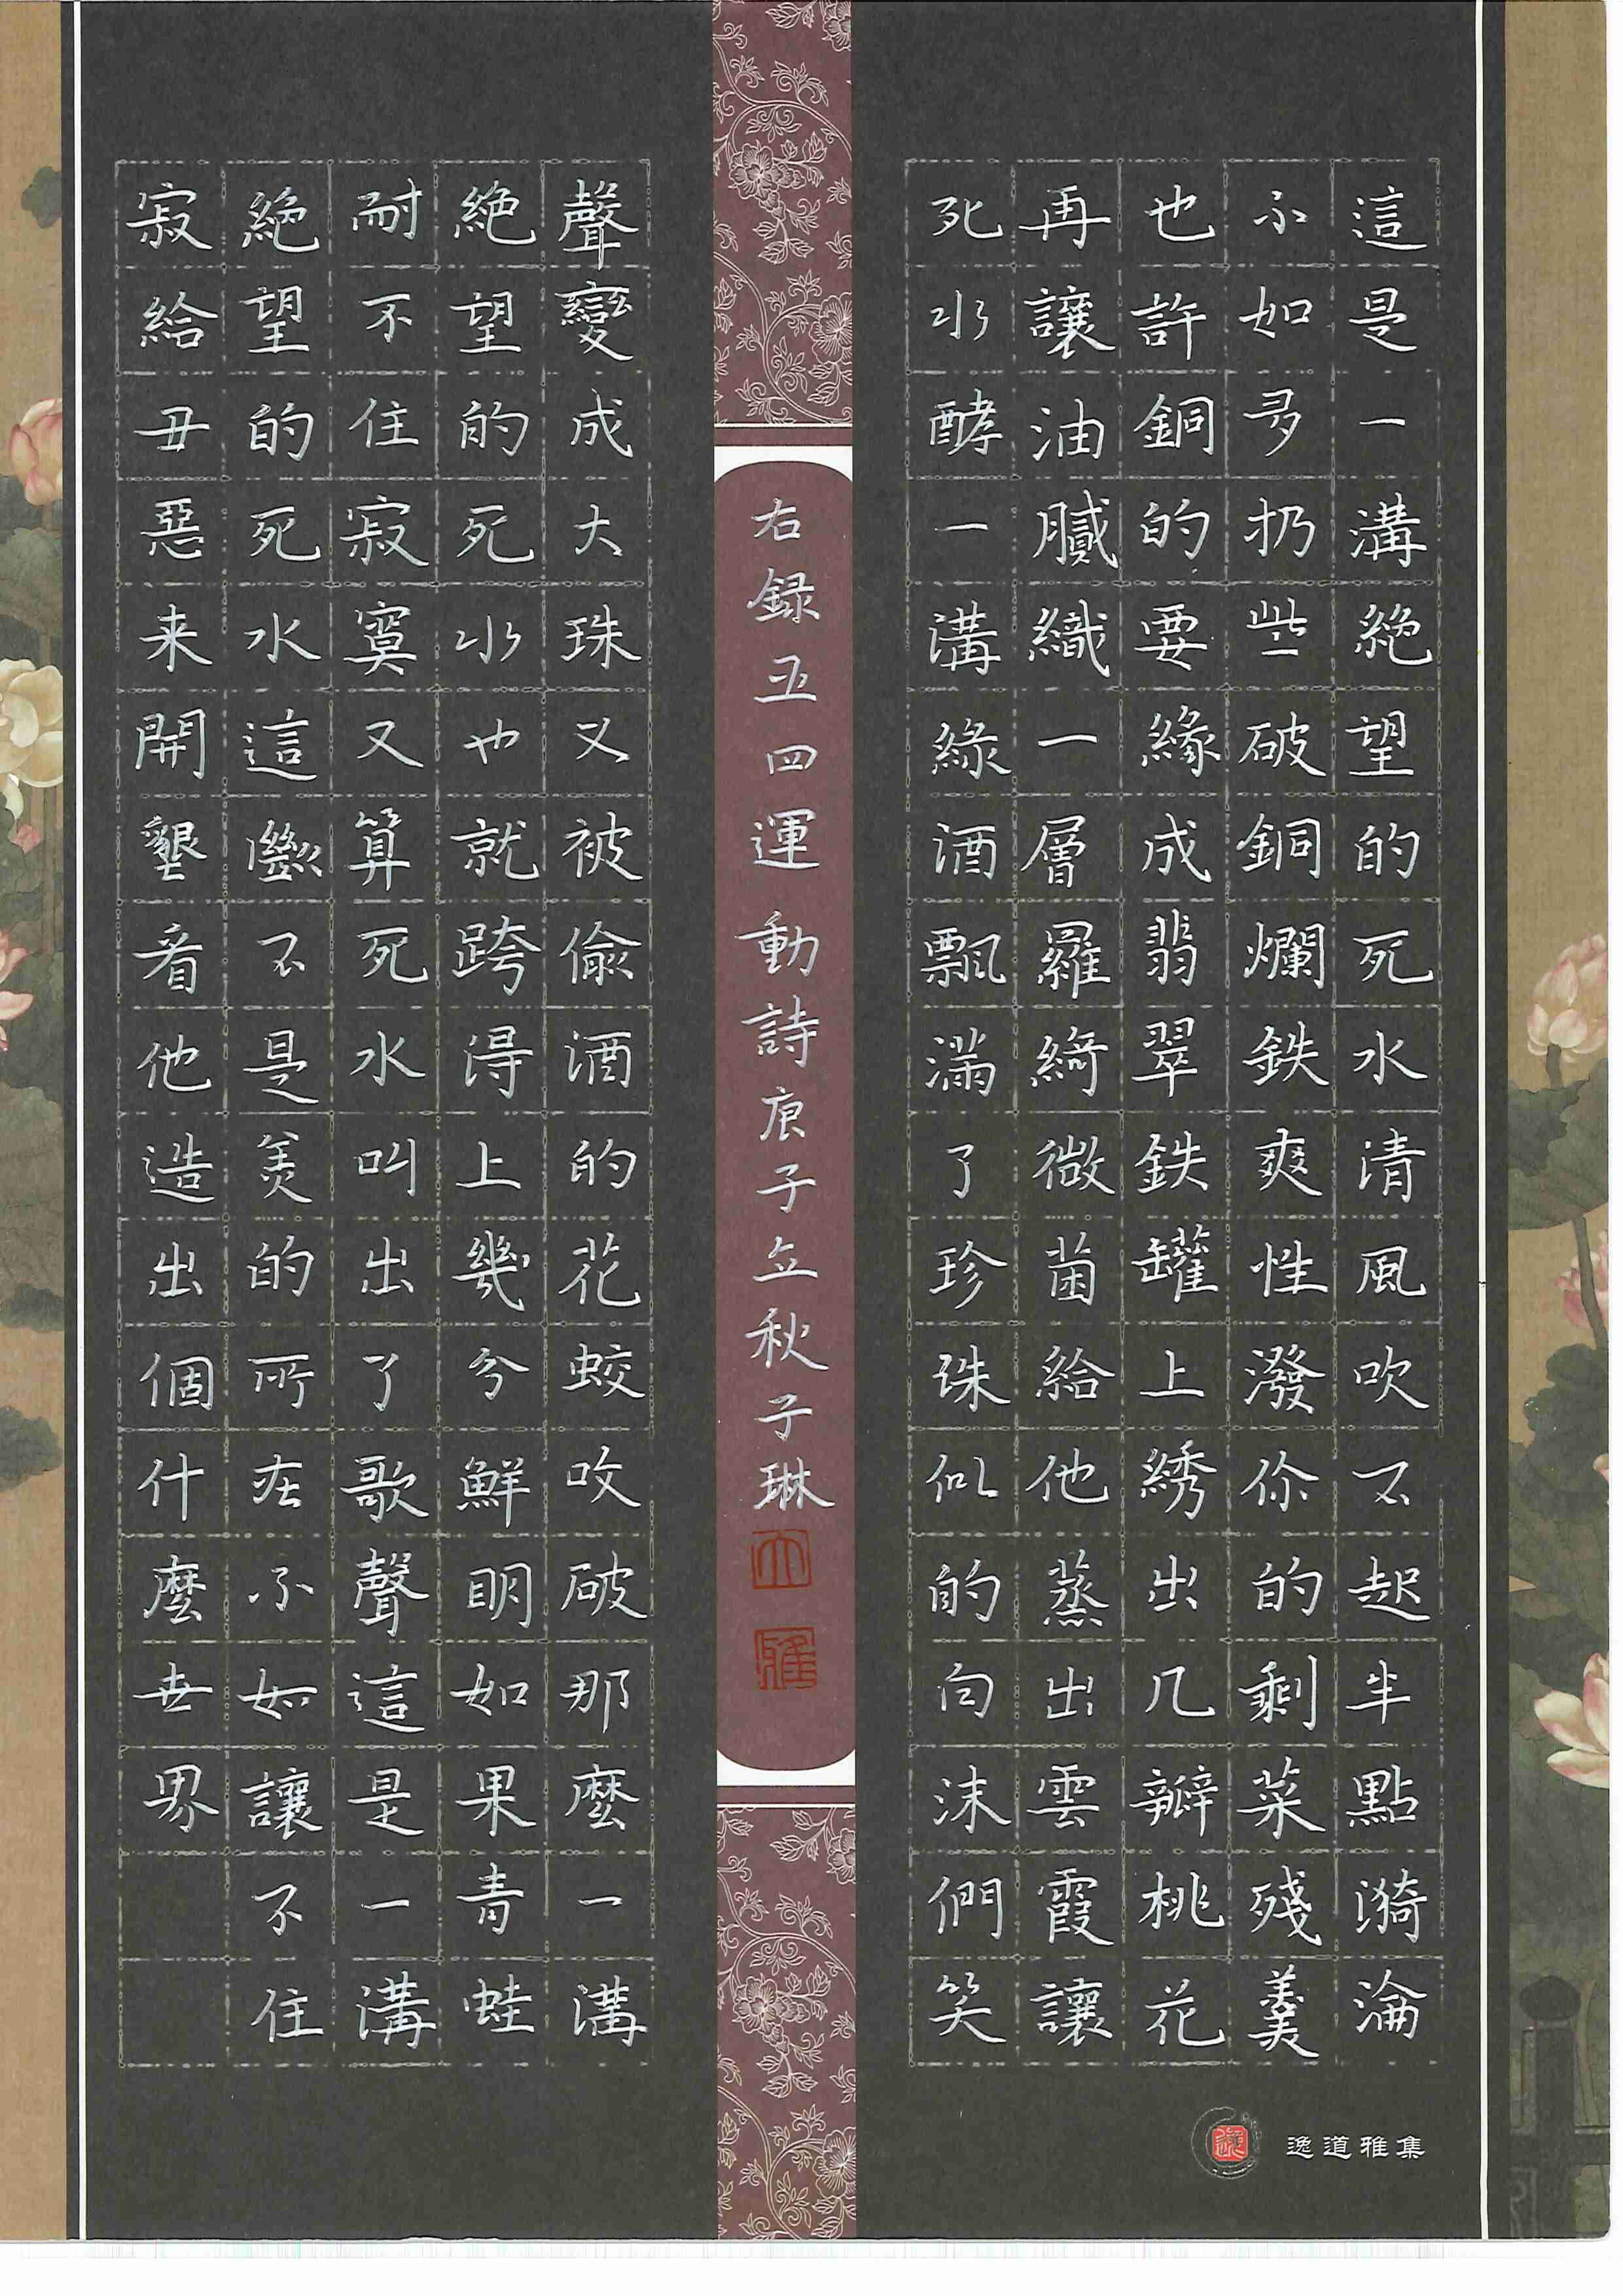 這是一溝絕望的死水清風吹不起半點漪淪
不如多扔些破銅爛鉄爽性潑你的剩菜殘羹
也許銅的要緣成翡翠鉄罐上綉出几瓣桃花
再讓油膩織一層羅綺微菌給他蒸出雲霞讓
死水酵一溝綠酒飄滿了珍珠似的白沫們笑
右録五四運動詩庚子立秋子琳
聲變成大珠又被偷酒的花蛟咬破那麼一溝
絕望的死水也就跨得上幾分鮮明如果青蛙
耐不住寂寞又算死水叫出了歌聲這是一溝
絕望的死水這斷不是美的所在不如讓不住
寂給丑惡来開墾看他造出個什麼世界
逸道雅集